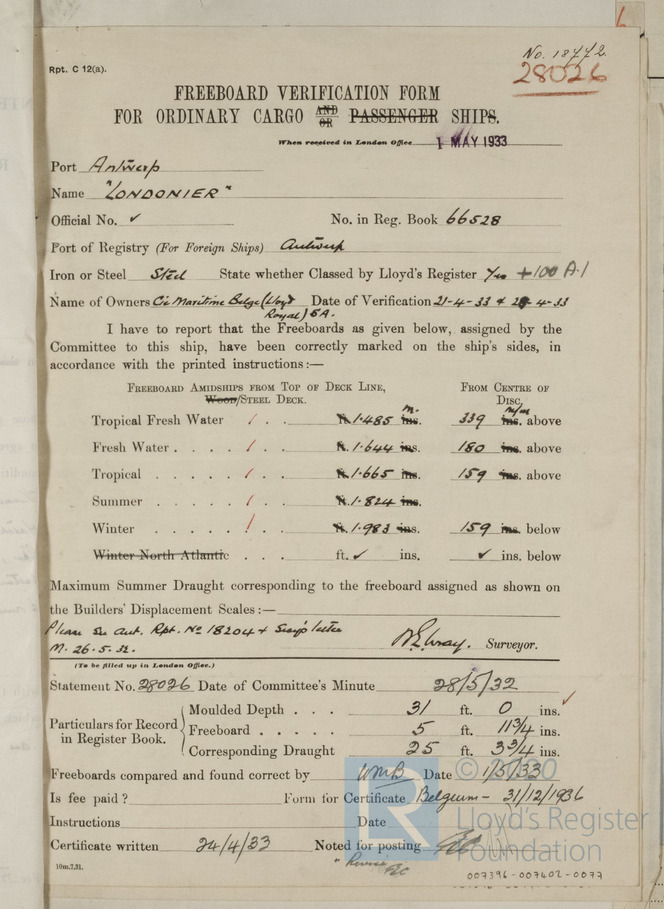 No. 18772
Rpt. C 12(a).
28026
FREEBOARD VERIFICATION FORM
FOR ORDINARY CARGO AND OR PASSENGER SHIPS.
When received in London Office 1 MAY 1933
Port Antwerp
Name "LONDONIER"
Official No. ✓ No. in Reg. Book 66528
Port of Registry (For Foreign Ships) Antwerp
Iron or Steel Steel State whether Classed by Lloyd's Register Yes +100 A.1
Name of Owners Cie Maritime Belge (Lloyd Royal) S.A. Date of Verification 21-4-33 & 4-33
I have to report that the Freeboards as given below, assigned by the
Committee to this ship, have been correctly marked on the ship's sides, in
accordance with the printed instructions:—
Freeboard Amidships from Top of Deck Line, From Centre of
Wood/Steel Deck. Disc.
m. m/m
Tropical Fresh Water / . . ft. 1.485 ins. 339 ins. above
Fresh Water . . . . / . . ft. 1.644 ins. 180 ins. above
Tropical . . . . . / . . ft. 1.665 ins. 159 ins. above
Summer . . . . . / . . ft. 1.824 ins.
Winter . . . . . / . . ft. 1.983 ins. 159 ins. below
Winter North Atlantic . . . ft. ✓ ins. ✓ ins. below
Maximum Summer Draught corresponding to the freeboard assigned as shown on
the Builders' Displacement Scales:—
Please see Ant. Rpt. No 18204 & Secy's letter
M. 26.5.32. Surveyor.
(To be filled up in London Office.)
Statement No. 28026 Date of Committee's Minute 28/5/32
Particulars for Record in Register Book.
Moulded Depth . . . 31 ft. 0 ins. ✓
Freeboard . . . . . 5 ft. 11¾ ins.
Corresponding Draught 25 ft. 3¾ ins.
Freeboards compared and found correct by WMB Date 1/5/33
Is fee paid? Form for Certificate Belgium - 31/12/1936
Instructions Date
Certificate written 24/4/33 Noted for posting
10m.7.31.
© 2020
LR
Lloyd's Register
Foundation
007396-007402-0077